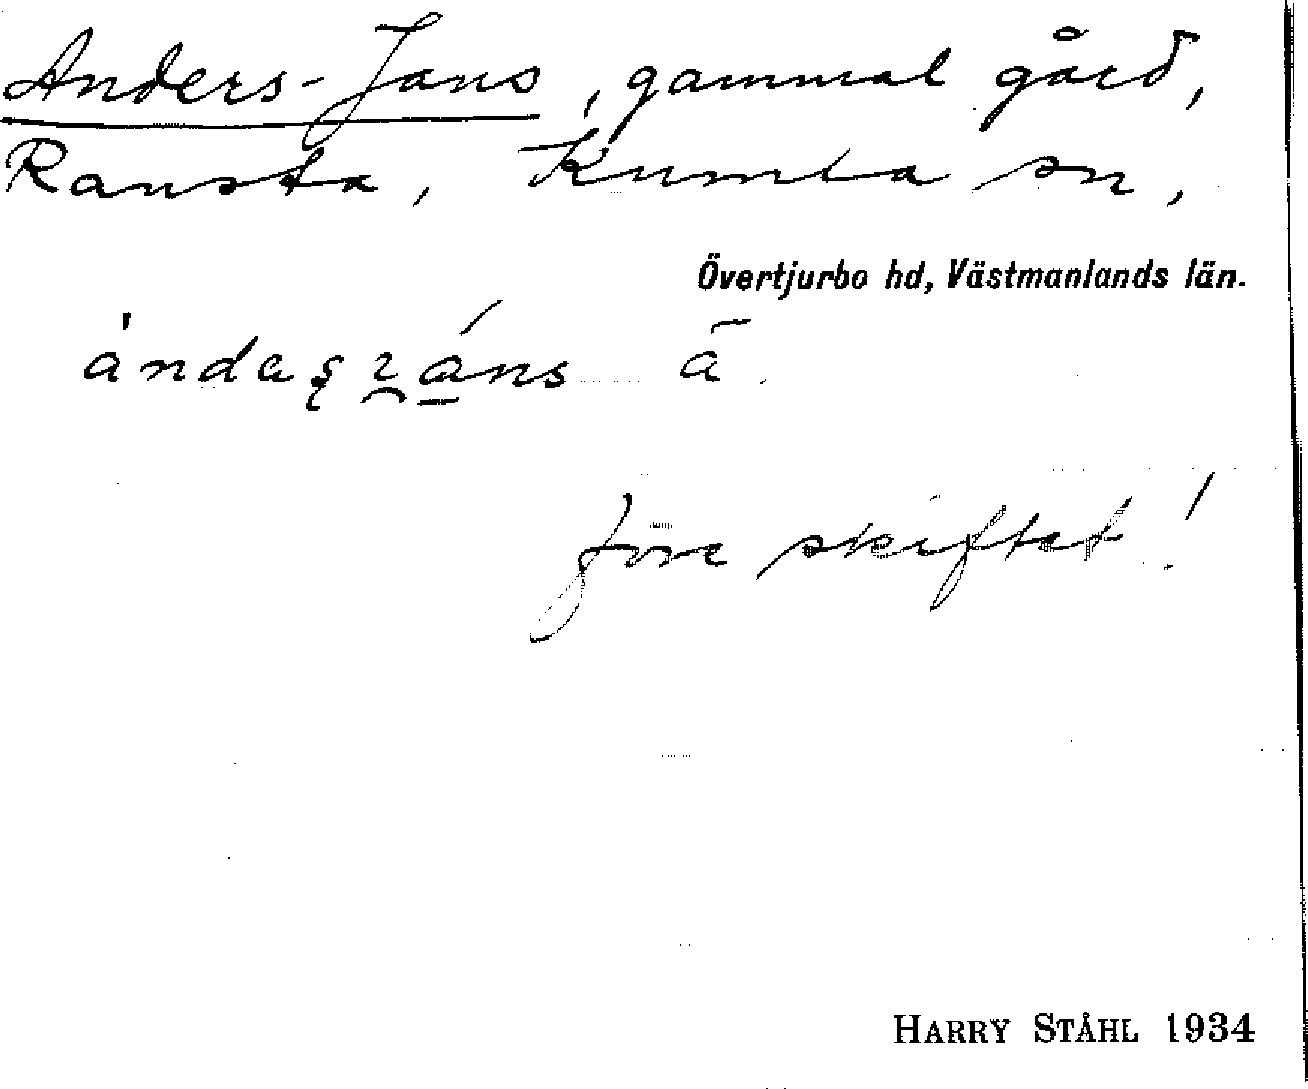 Anders-Jans, gammal gård,
Ransta, Kumla sn,
Övertjurbo hd, Västmanlands län.
ā
före skiftet!
HARRY STÅHL 1934